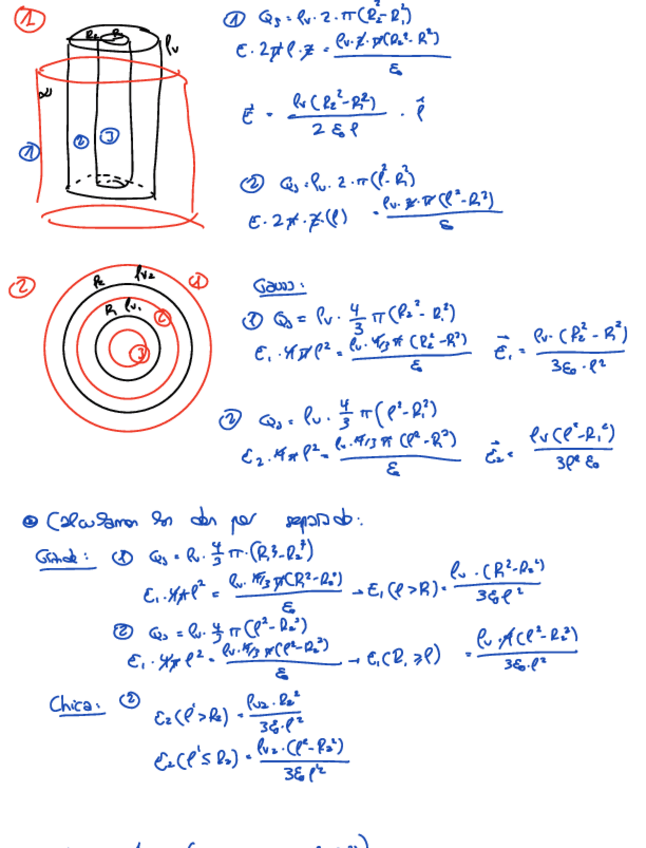 1
① Q₃ = ρv · 2 · π(R₂² - R₁²)
R₂ R₁ ρv
E · 2πρ · z = ρv · z · π(R₂² - R₁²) / ε₀
∞
E⃗ = ρv (R₂² - R₁²) / 2 ε₀ ρ · ρ⃗
① ② ③
② Q₃ = ρv · 2 · π(ρ² - R₁²)
E · 2π · z · (ρ) = ρv · z · π (ρ² - R₁²) / ε₀
2
R₂ ρv₂ ①
R₁ ρv₁ ②
③
Gauss:
① Q₃ = ρv · 4/3 π (R₂² - R₁²)
E₁ · 4πρ² = ρv · 4/3 π (R₂² - R₁²) / ε₀ E⃗₁ = ρv · (R₂² - R₁²) / 3ε₀ · ρ²
② Q₃ = ρv 4/3 π (ρ² - R₁²)
E₂ · 4πρ² = ρv · 4/3 π (ρ² - R₁²) / ε₀ E⃗₂ = ρv (ρ² - R₁²) / 3ρ² ε₀
Calculamos en dos por separado:
Grande: ① Q₃ = ρv · 4/3 π · (R³ - R₂³)
E₁ · 4πρ² = ρv · 4/3 π (R² - R₂²) / ε₀ → E₁ (ρ > R) = ρv · (R² - R₂²) / 3ε₀ρ²
② Q₃ = ρv · 4/3 π (ρ² - R₂²)
E₁ · 4πρ² = ρv · 4/3 π (ρ² - R₂²) / ε₀ → E₁ (R₁ ≥ ρ) = ρv · (ρ² - R₂²) / 3ε₀ · ρ²
Chica: ② E₂ (ρ' > R₂) = ρv₂ · R₂² / 3ε₀ · ρ²
E₂ (ρ' ≤ R₂) = ρv₂ · (ρ² - R₂²) / 3ε₀ ρ'²